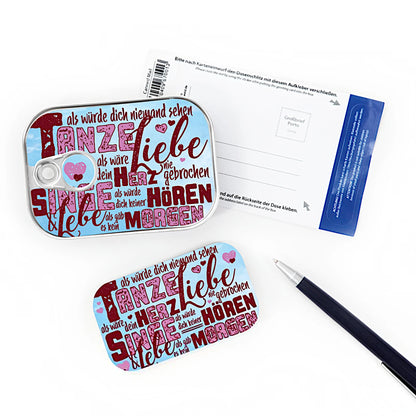 Bitte nach Karteneinwurf den Dosenschlitz mit diesem Aufkleber verschließen.
Großbrief
Porto
als würde dich niemand sehen
TANZE
Liebe
als wäre
dein HERZ nie
gebrochen
SINGE
als würde
dich keiner HÖREN
& lebe
als gäb
es kein MORGEN
und auf die Rückseite der Dose kleben.
als würde dich niemand sehen
TANZE
Liebe
als wäre dein HERZ nie
gebrochen
SINGE
als würde
dich keiner HÖREN
& lebe
als gäb
es kein MORGEN